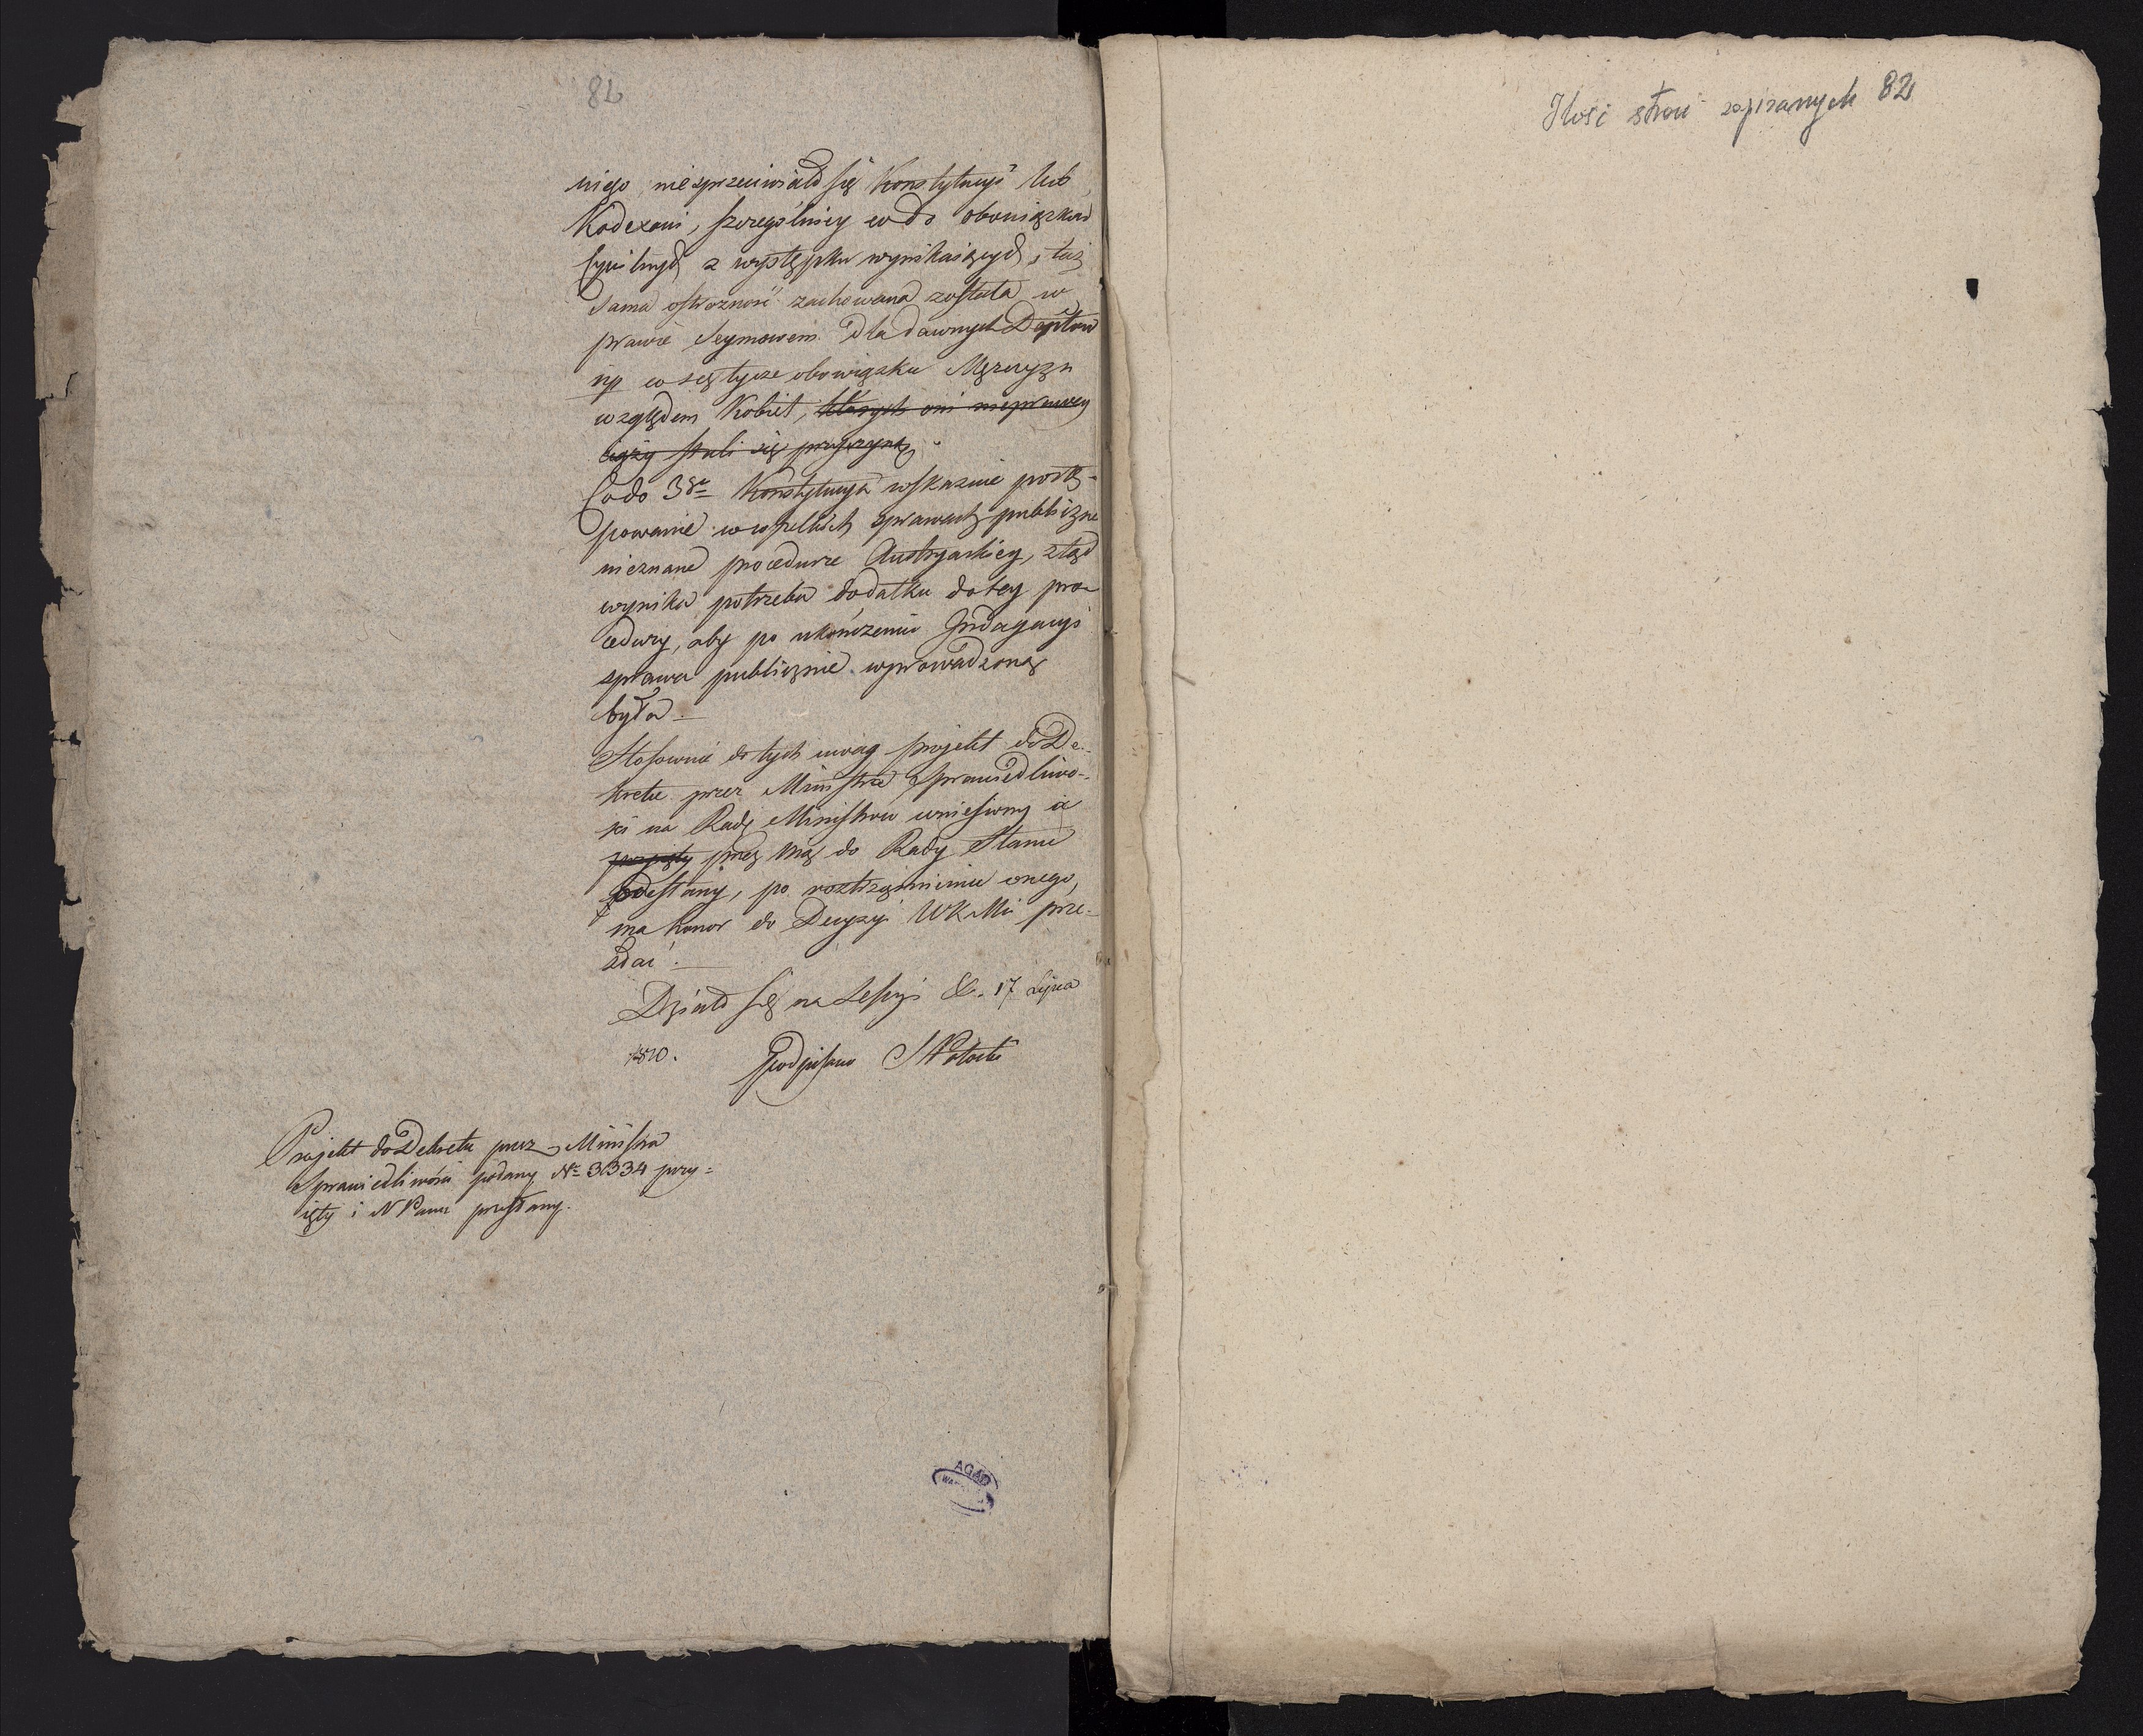 82
niego niesprzeciwiał się Konstytucyi lub
Kodexowi, szczególniey co do obowiązków
Cywilnych z występku wynikaiących, taż
sama ostrożność zachowana została w
prawie Seymowem dla dawnych Deptów
np co się tycze obowiązku Męzczyzn
względem Kobiet, których oni nieprawey
ciąży stali się przyczyną.
Co do 3go Konstytucya wskazuie postę-
powanie w wszelkich sprawach publiczne
nieznane procedurze Austryackiey, ztąd
wynika potrzeba dodatku do tey pro-
cedury, aby po ukończeniu Indagacyi
sprawa publicznie wyprowadzoną
była.
Stosownie do tych uwag projekt do De-
kretu przez Ministra Sprawiedliwo-
ści na Radę Ministrów wniesiony a
przyięty przez Nią do Rady Stanu
odesłany, po roztrząśnieniu onego,
ma honor do Decyzyi WKMci prze-
dać.
Działo się na Sessyi &c. 17 Lipca
1810. Podpisano S Potocki
Projekt do Dekretu przez Ministra
Sprawiedliwości podany No 3334 przy=
ięty i N Panu przesłany.
AGAD
Ilość stron zapisanych 82